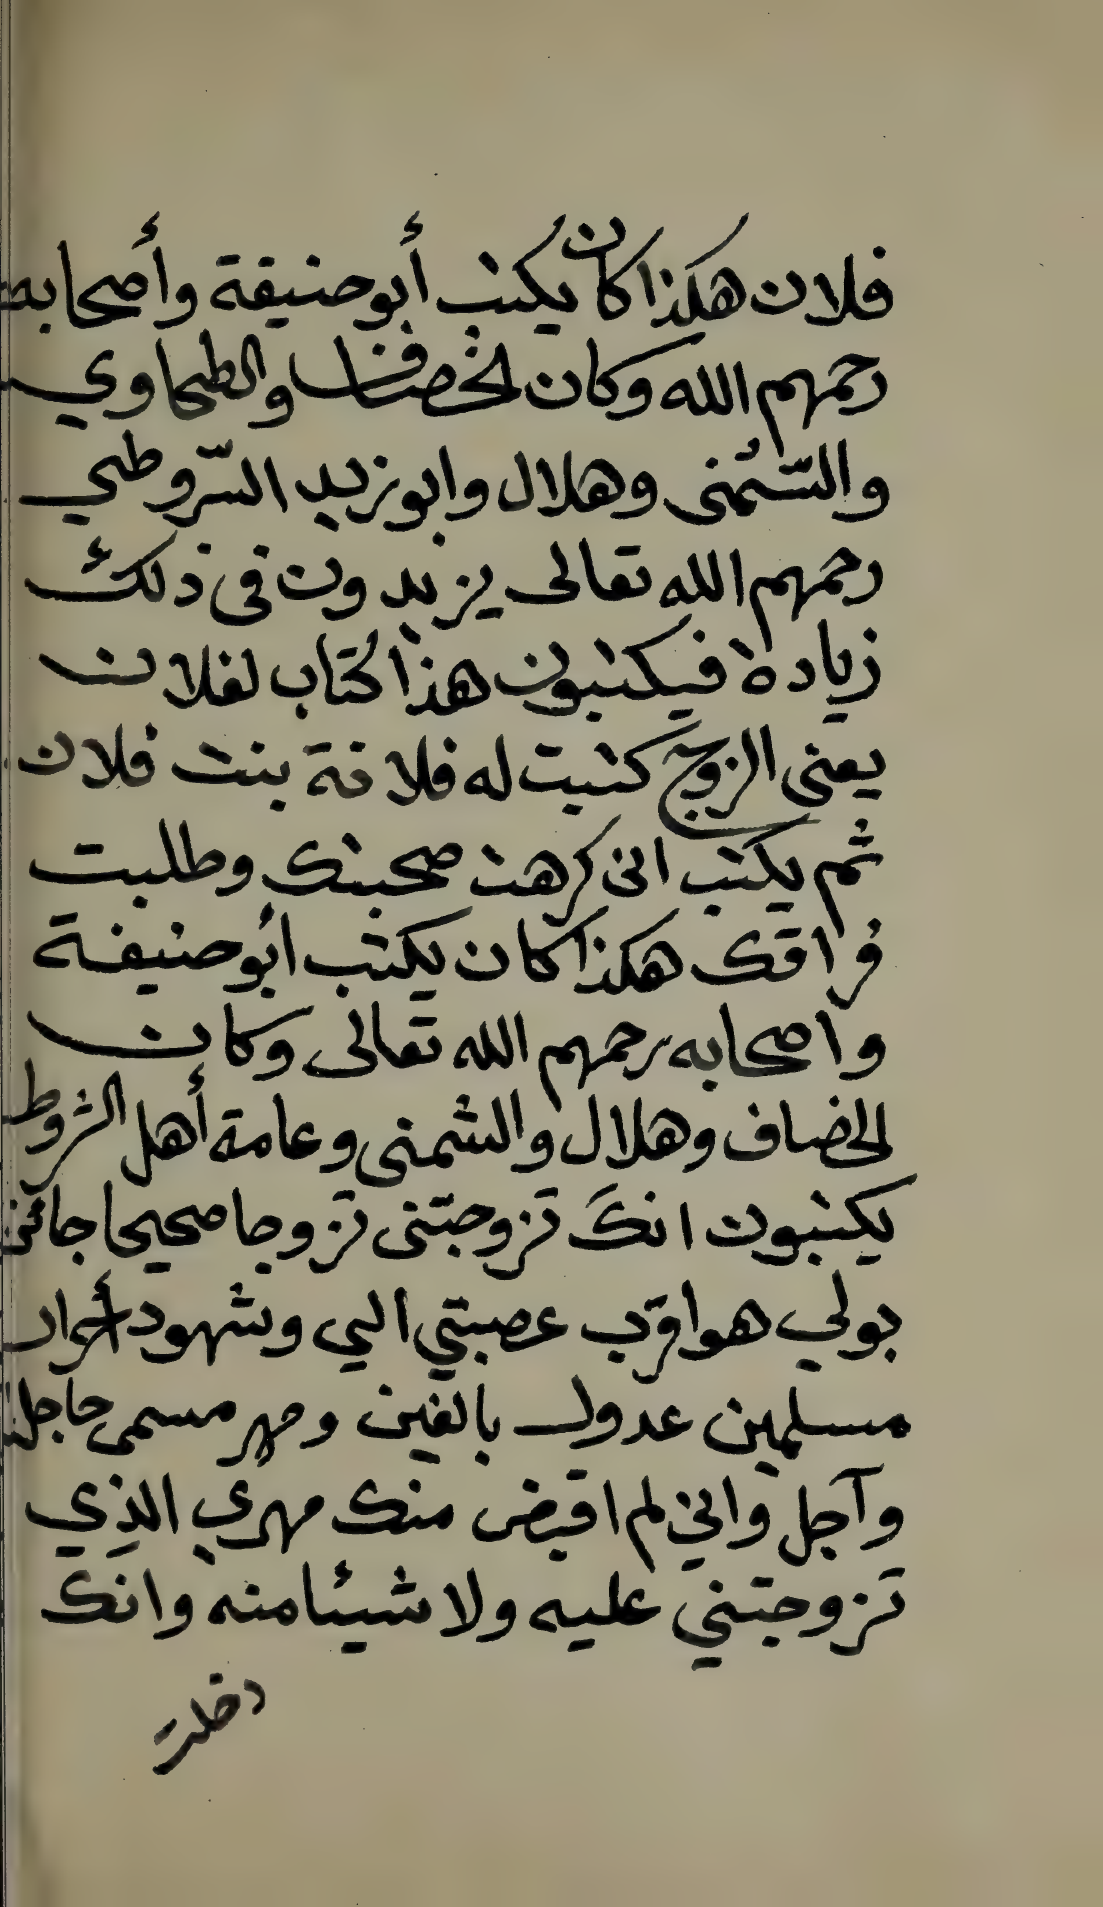 فلان هكذا كان يكتب أبو حنيفة وأصحابه
رحمهم الله وكان الخصاف والطحاوي
والسّمنى وهلال وابو زيد السّروطي
رحمهم الله تعالى يزيدون فى ذلك
زيادة فيكتبون هذا كتاب لفلان
يعنى الزوج كتبت له فلانة بنت فلان
ثم يكتب انى كرهت صحبتك وطلبت
فراقك هكذا كان يكتب ابو حنيفة
واصحابه رحمهم الله تعالى وكان
الخضاف وهلال والشمنى وعامة أهل الشروط
يكتبون انك تزوجتنى تزوجا صحيحا جائز
بولي هو اقرب عصبتي الي وشهود أحرار
مسلمين عدول بالفين ومهر مسمى حاجل
وآجل واني لم اقبض منك مهري الذي
تزوجتني عليه ولا شيئا منه وانك
دخلت